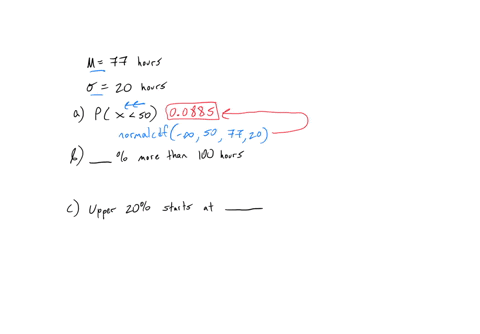 μ = 77 hours
σ = 20 hours
a) P(x < 50) 0.0885
normalcdf(-∞, 50, 77, 20)
b) ___% more than 100 hours
c) Upper 20% starts at ____